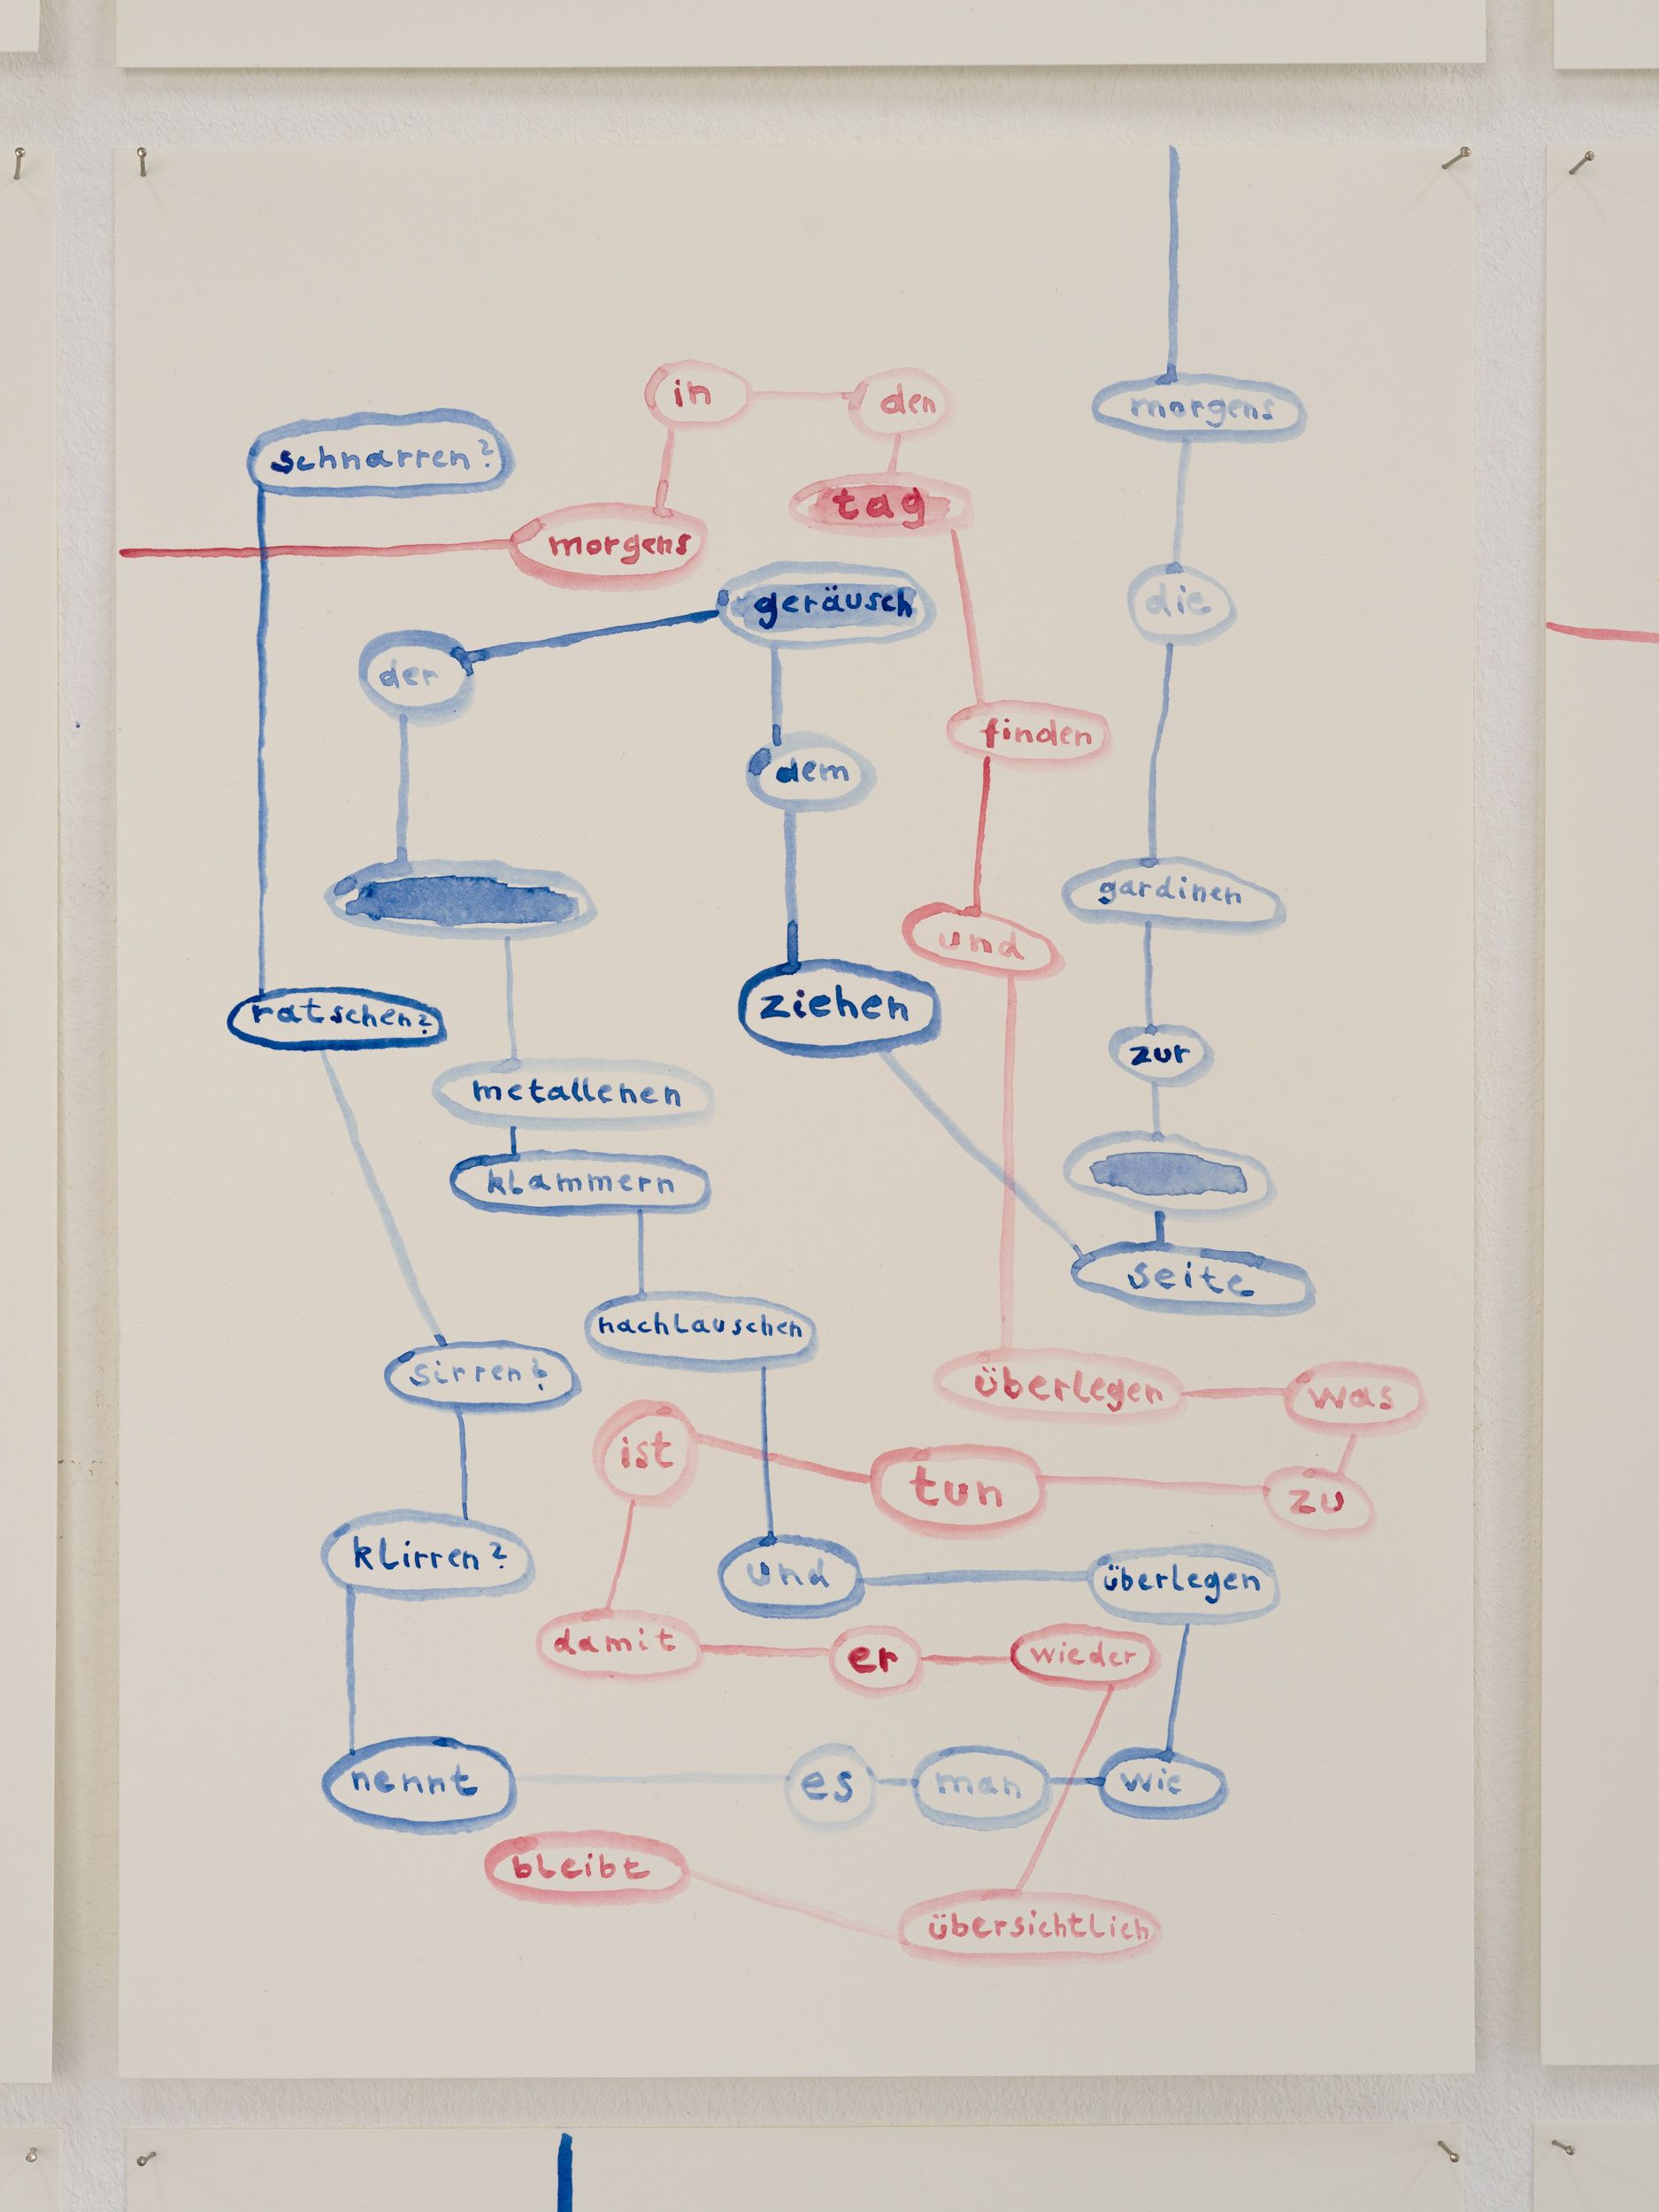 morgens
in
den
tag
finden
und
überlegen
was
zu
tun
ist
damit
er
wieder
übersichtlich
bleibt
morgens
die
gardinen
zur
seite
ziehen
dem
geräusch
der
metallenen
klammern
nachlauschen
und
überlegen
wie
man
es
nennt
klirren?
sirren?
ratschen?
schnarren?